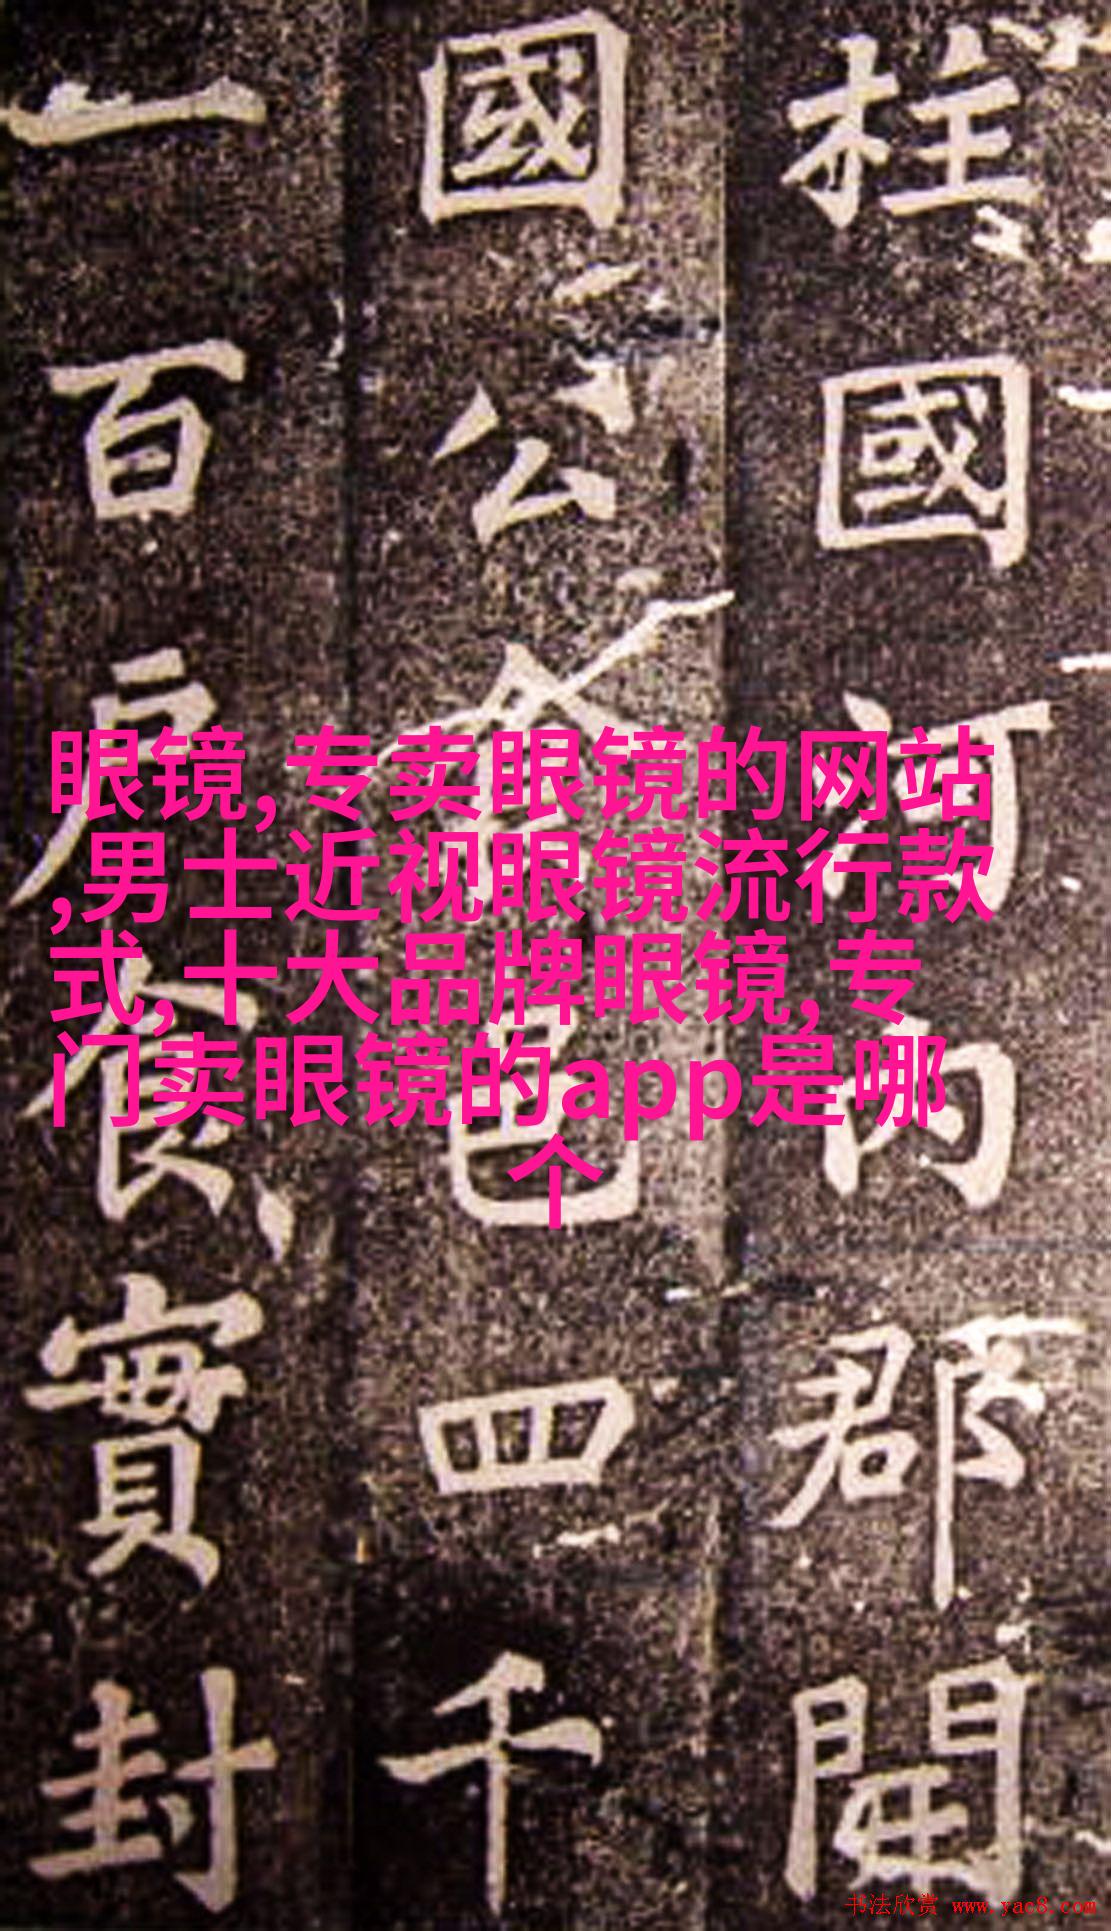 柱國河内郡開
國公食邑四千
一百户食實封
眼镜,专卖眼镜的网站
,男士近视眼镜流行款
式,十大品牌眼镜,专
门卖眼镜的app是哪
个
书法欣赏 www.yac8.com